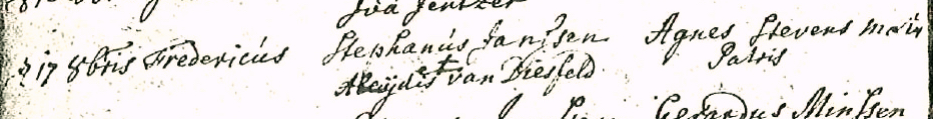 Iva Jentzer
17 8bris Fredericus Stephanus Janssen Agnes Stevens mater
et Aleijdis van Diesfeld Patris
Gerardus Minssen